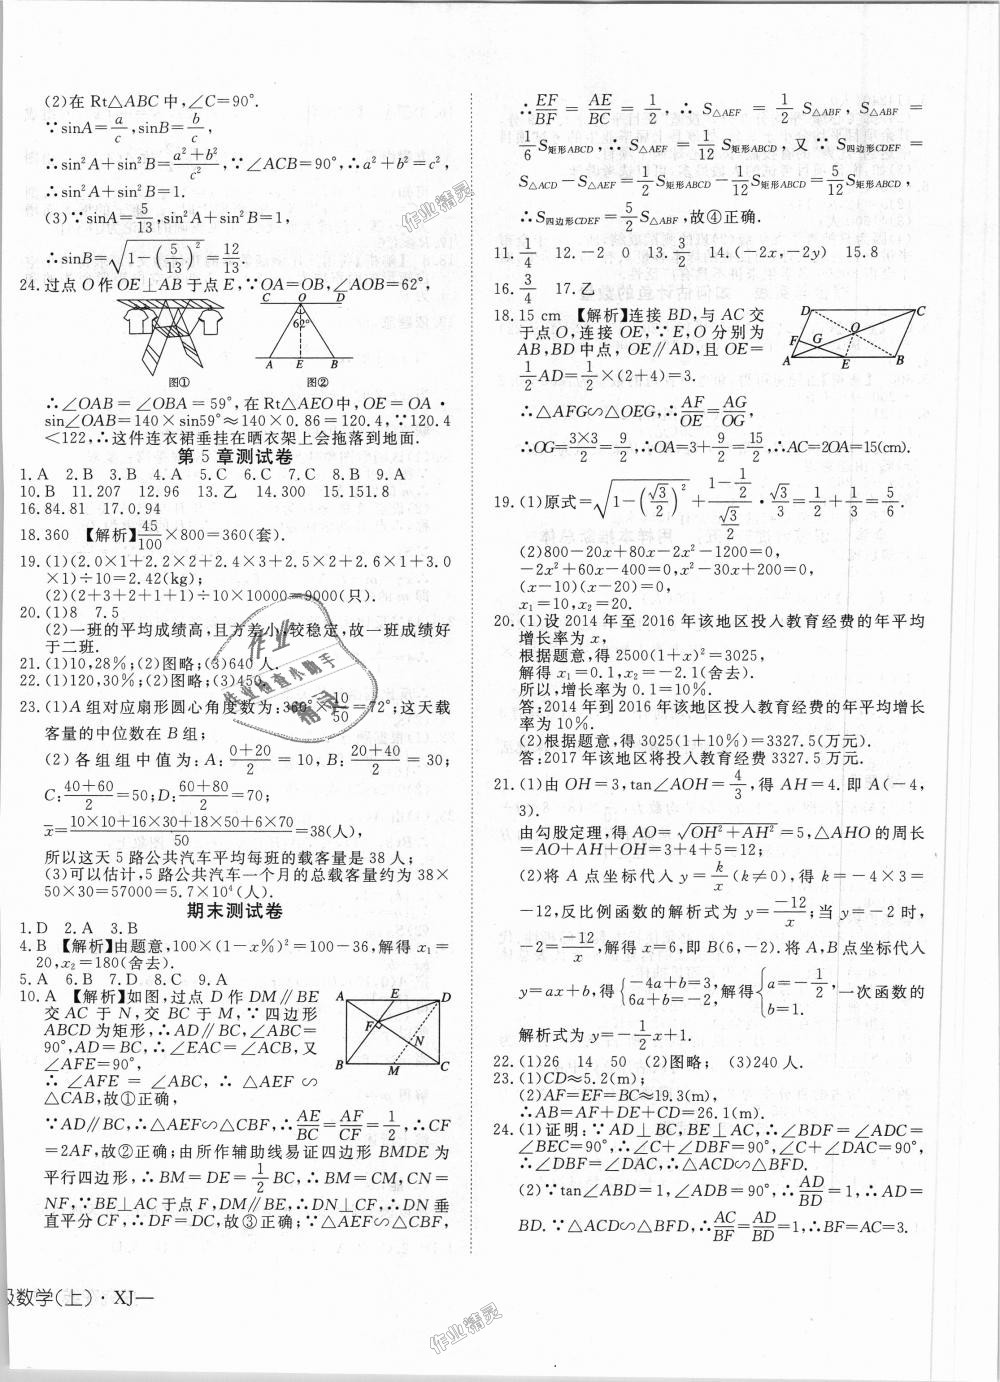 (2)在 Rt△ABC 中,∠C=90°.
∵sinA=a/c,sinB=b/c,
∴sin²A+sin²B=(a²+b²)/c²,∵∠ACB=90°,∴a²+b²=c²,
∴sin²A+sin²B=1.
(3)∵sinA=5/13,sin²A+sin²B=1,
∴sinB=√(1-(5/13)²)=12/13.
24.过点 O 作 OE⊥AB 于点 E,∵OA=OB,∠AOB=62°,
C O D
62°
A E B
图① 图②
∴∠OAB=∠OBA=59°,在 Rt△AEO 中,OE=OA·
sin∠OAB=140×sin59°≈140×0.86=120.4,∵120.4
<122,∴这件连衣裙垂挂在晒衣架上会拖落到地面.
第 5 章测试卷
1.A 2.B 3.B 4.A 5.C 6.C 7.C 8.B 9.A
10.B 11.207 12.96 13.乙 14.300 15.151.8
16.84.81 17.0.94
18.360 【解析】45/100×800=360(套).
19.(1)(2.0×1+2.2×2+2.4×3+2.5×2+2.6×1+3.0
×1)÷10=2.42(kg);
(2)(2+3+2+1+1)÷10×10000=9000(只).
20.(1)8 7.5
(2)一班的平均成绩高,且方差小,较稳定,故一班成绩好
于二班.
21.(1)10,28%;(2)图略;(3)640 人.
22.(1)120,30%;(2)图略;(3)450.
23.(1)A 组对应扇形圆心角度数为:360°×10/50=72°;这天载
客量的中位数在 B 组;
(2)各组组中值为:A:(0+20)/2=10,B:(20+40)/2=30;
C:(40+60)/2=50;D:(60+80)/2=70;
x̄=(10×10+16×30+18×50+6×70)/50=38(人),
所以这天 5 路公共汽车平均每班的载客量是 38 人;
(3)可以估计,5 路公共汽车一个月的总载客量约为 38×
50×30=57000=5.7×10⁴(人).
期末测试卷
1.D 2.A 3.B
4.B 【解析】由题意,100×(1-x%)²=100-36,解得 x₁=
20,x₂=180(舍去).
5.A 6.B 7.D 8.C 9.A
10.A 【解析】如图,过点 D 作 DM∥BE
交 AC 于 N,交 BC 于 M,∵四边形
ABCD 为矩形,∴AD∥BC,∠ABC=
90°,AD=BC,∴∠EAC=∠ACB,又
∠AFE=90°,
∴∠AFE=∠ABC,∴△AEF∽
△CAB,故①正确,
A E D
F N
B M C
∵AD∥BC,∴△AEF∽△CBF,∴AE/BC=AF/CF=1/2,∴CF
=2AF,故②正确;由所作辅助线易证四边形 BMDE 为
平行四边形,∴BM=DE=1/2BC,∴BM=CM,CN=
NF,∵BE⊥AC 于点 F,DM∥BE,∴DN⊥CF,∴DN 垂
直平分 CF,∴DF=DC,故③正确;∵△AEF∽△CBF,
∴EF/BF=AE/BC=1/2,∴S△AEF=1/2 S△ABF,S△ABF=
1/6 S矩形ABCD,∴S△AEF=1/12 S矩形ABCD,又∵S四边形CDEF=
S△ACD-S△AEF=1/2 S矩形ABCD-1/12 S矩形ABCD=5/12 S矩形ABCD,
∴S四边形CDEF=5/2 S△ABF,故④正确.
11.1/4 12.-2 0 13.3/2 14.(-2x,-2y) 15.8
16.3/4 17.乙
18.15 cm 【解析】连接 BD,与 AC 交
于点 O,连接 OE,∵E,O 分别为
AB,BD 中点,OE∥AD,且 OE=
1/2AD=1/2×(2+4)=3.
D C
F O
G
A E B
∴△AFG∽△OEG,∴AF/OE=AG/OG,
∴OG=(3×3)/2=9/2,∴OA=3+9/2=15/2,∴AC=2OA=15(cm).
19.(1)原式=√(1-(√3/2)²)+(1-1/2)/(√3/2)·√3/3=1/2+1/3=5/6.
(2)800-20x+80x-2x²-1200=0,
-2x²+60x-400=0,x²-30x+200=0,
(x-10)(x-20)=0,
x₁=10,x₂=20.
20.(1)设 2014 年至 2016 年该地区投入教育经费的年平均
增长率为 x,
根据题意,得 2500(1+x)²=3025,
解得 x₁=0.1,x₂=-2.1(舍去).
所以,增长率为 0.1=10%.
答:2014 年到 2016 年该地区投入教育经费的年平均增长
率为 10%.
(2)根据题意,得 3025(1+10%)=3327.5(万元).
答:2017 年该地区将投入教育经费 3327.5 万元.
21.(1)由 OH=3,tan∠AOH=4/3,得 AH=4.即 A(-4,
3).
由勾股定理,得 AO=√(OH²+AH²)=5,△AHO 的周长
=AO+AH+OH=3+4+5=12;
(2)将 A 点坐标代入 y=k/x(k≠0),得 k=-4×3=
-12,反比例函数的解析式为 y=-12/x;当 y=-2 时,
-2=-12/x,解得 x=6,即 B(6,-2).将 A,B 点坐标代入
y=ax+b,得{-4a+b=3, 6a+b=-2,解得{a=-1/2, b=1. 一次函数的
解析式为 y=-1/2x+1.
22.(1)26 14 50 (2)图略; (3)240 人.
23.(1)CD≈5.2(m);
(2)AF=EF=BC≈19.3(m),
∴AB=AF+DE+CD=26.1(m).
24.(1)证明:∵AD⊥BC,BE⊥AC,∴∠BDF=∠ADC=
∠BEC=90°,∴∠C+∠DBF=90°,∠C+∠DAC=90°,
∴∠DBF=∠DAC,∴△ACD∽△BFD.
(2)∵tan∠ABD=1,∠ADB=90°,∴AD/BD=1,∴AD=
BD.∵△ACD∽△BFD,∴AC/BF=AD/BD=1,∴BF=AC=3.
级数学(上)·XJ—
作业精灵
作业
作业检查小助手
精灵
作业精灵